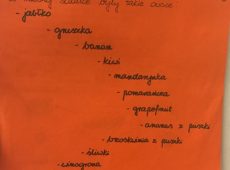 w naszej sałatce były takie owoce:
- jabłko
- gruszka
- banan
- kiwi
- mandarynka
- pomarańcza
- grapefruit
- ananas z puszki
- brzoskwinia z puszki
- śliwki
- winogrona